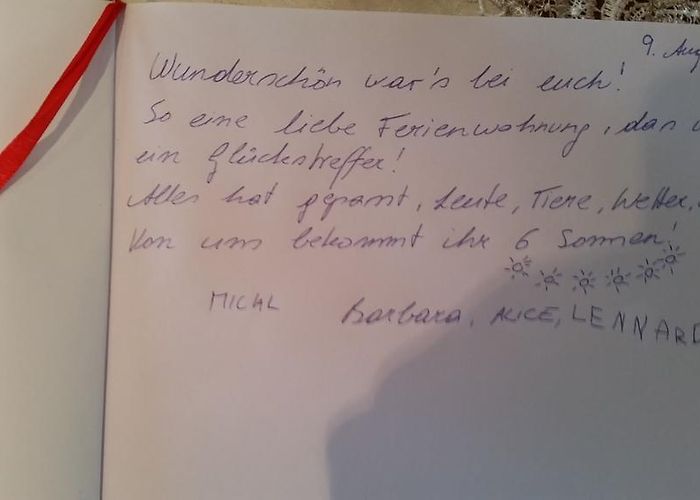 9. Aug
Wunderschön war's bei euch!
So eine liebe Ferienwohnung, das
ein Glückstreffer!
Alles hat gepasst, Leute, Tiere, Wetter,
Von uns bekommt ihr 6 Sonnen!
MICHL Barbara, ALICE, LENNARD